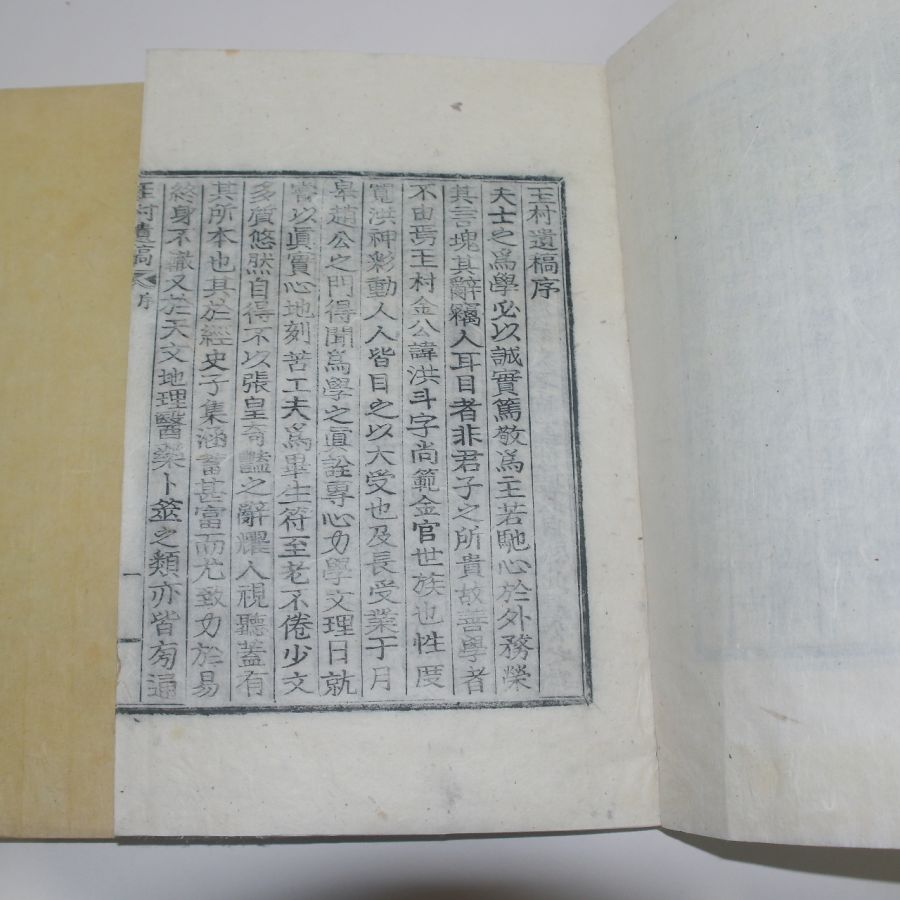 玉村遺稿序
夫士之爲學必以誠實篤敬爲主若馳心於外務榮
其言塊其辭竊人耳目者非君子之所貴故善學者
不由焉玉村金公諱洪斗字尚範金官世族也性度
寬洪神彩動人人皆目之以大受也及長受業于月
皐趙公之門得聞爲學之眞詮專心力學文理日就
以眞實心地刻苦工夫爲畢生符至老不倦少文
多質悠然自得不以張皇奇豔之辭耀人視聽蓋有
其所本也其於經史子集涵蓄甚富而尤致力於易
終身不撤又於天文地理醫藥卜筮之類亦皆旁通
玉村遺稿 序 一